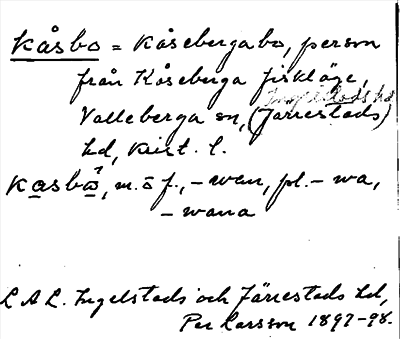 kåsbo = Kåsebergabo, person
från Kåseberga fiskläge,
Ingelstads hd
Valleberga sn, (Järrestads)
hd, Krist. l.
kasbo, m. o f., -wen, pl. -wa,
-wana
L A L. Ingelstads och Järrestads hd,
Per Larsson 1897-98.